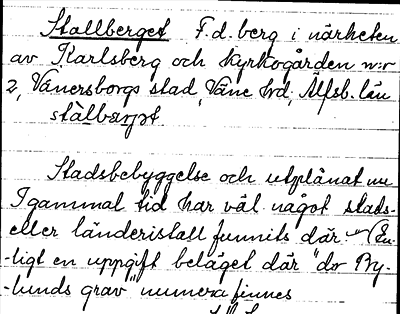 Stallberget F.d. berg i närheten
av Karlsberg och Kyrkogården n:r
2, Vänersborgs stad, Väne hd, Älfsb. län
stàlbærjət
Stadsbebyggelse och utplånat nu
I gammal tid har väl något stads-
eller länderistall funnits där. En-
-ligt en uppgift beläget där "d:r Ry-
-lunds grav" numera finnes